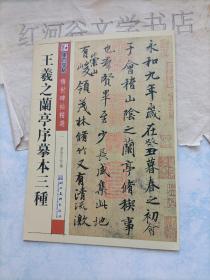 永和九年歲在癸丑暮春之初會
于會稽山陰之蘭亭脩禊事
也羣賢畢至少長咸集此地
有崇山峻領茂林脩竹又有清流激
傳世碑帖精選
王羲之蘭亭序摹本三種
湖北美術出版社